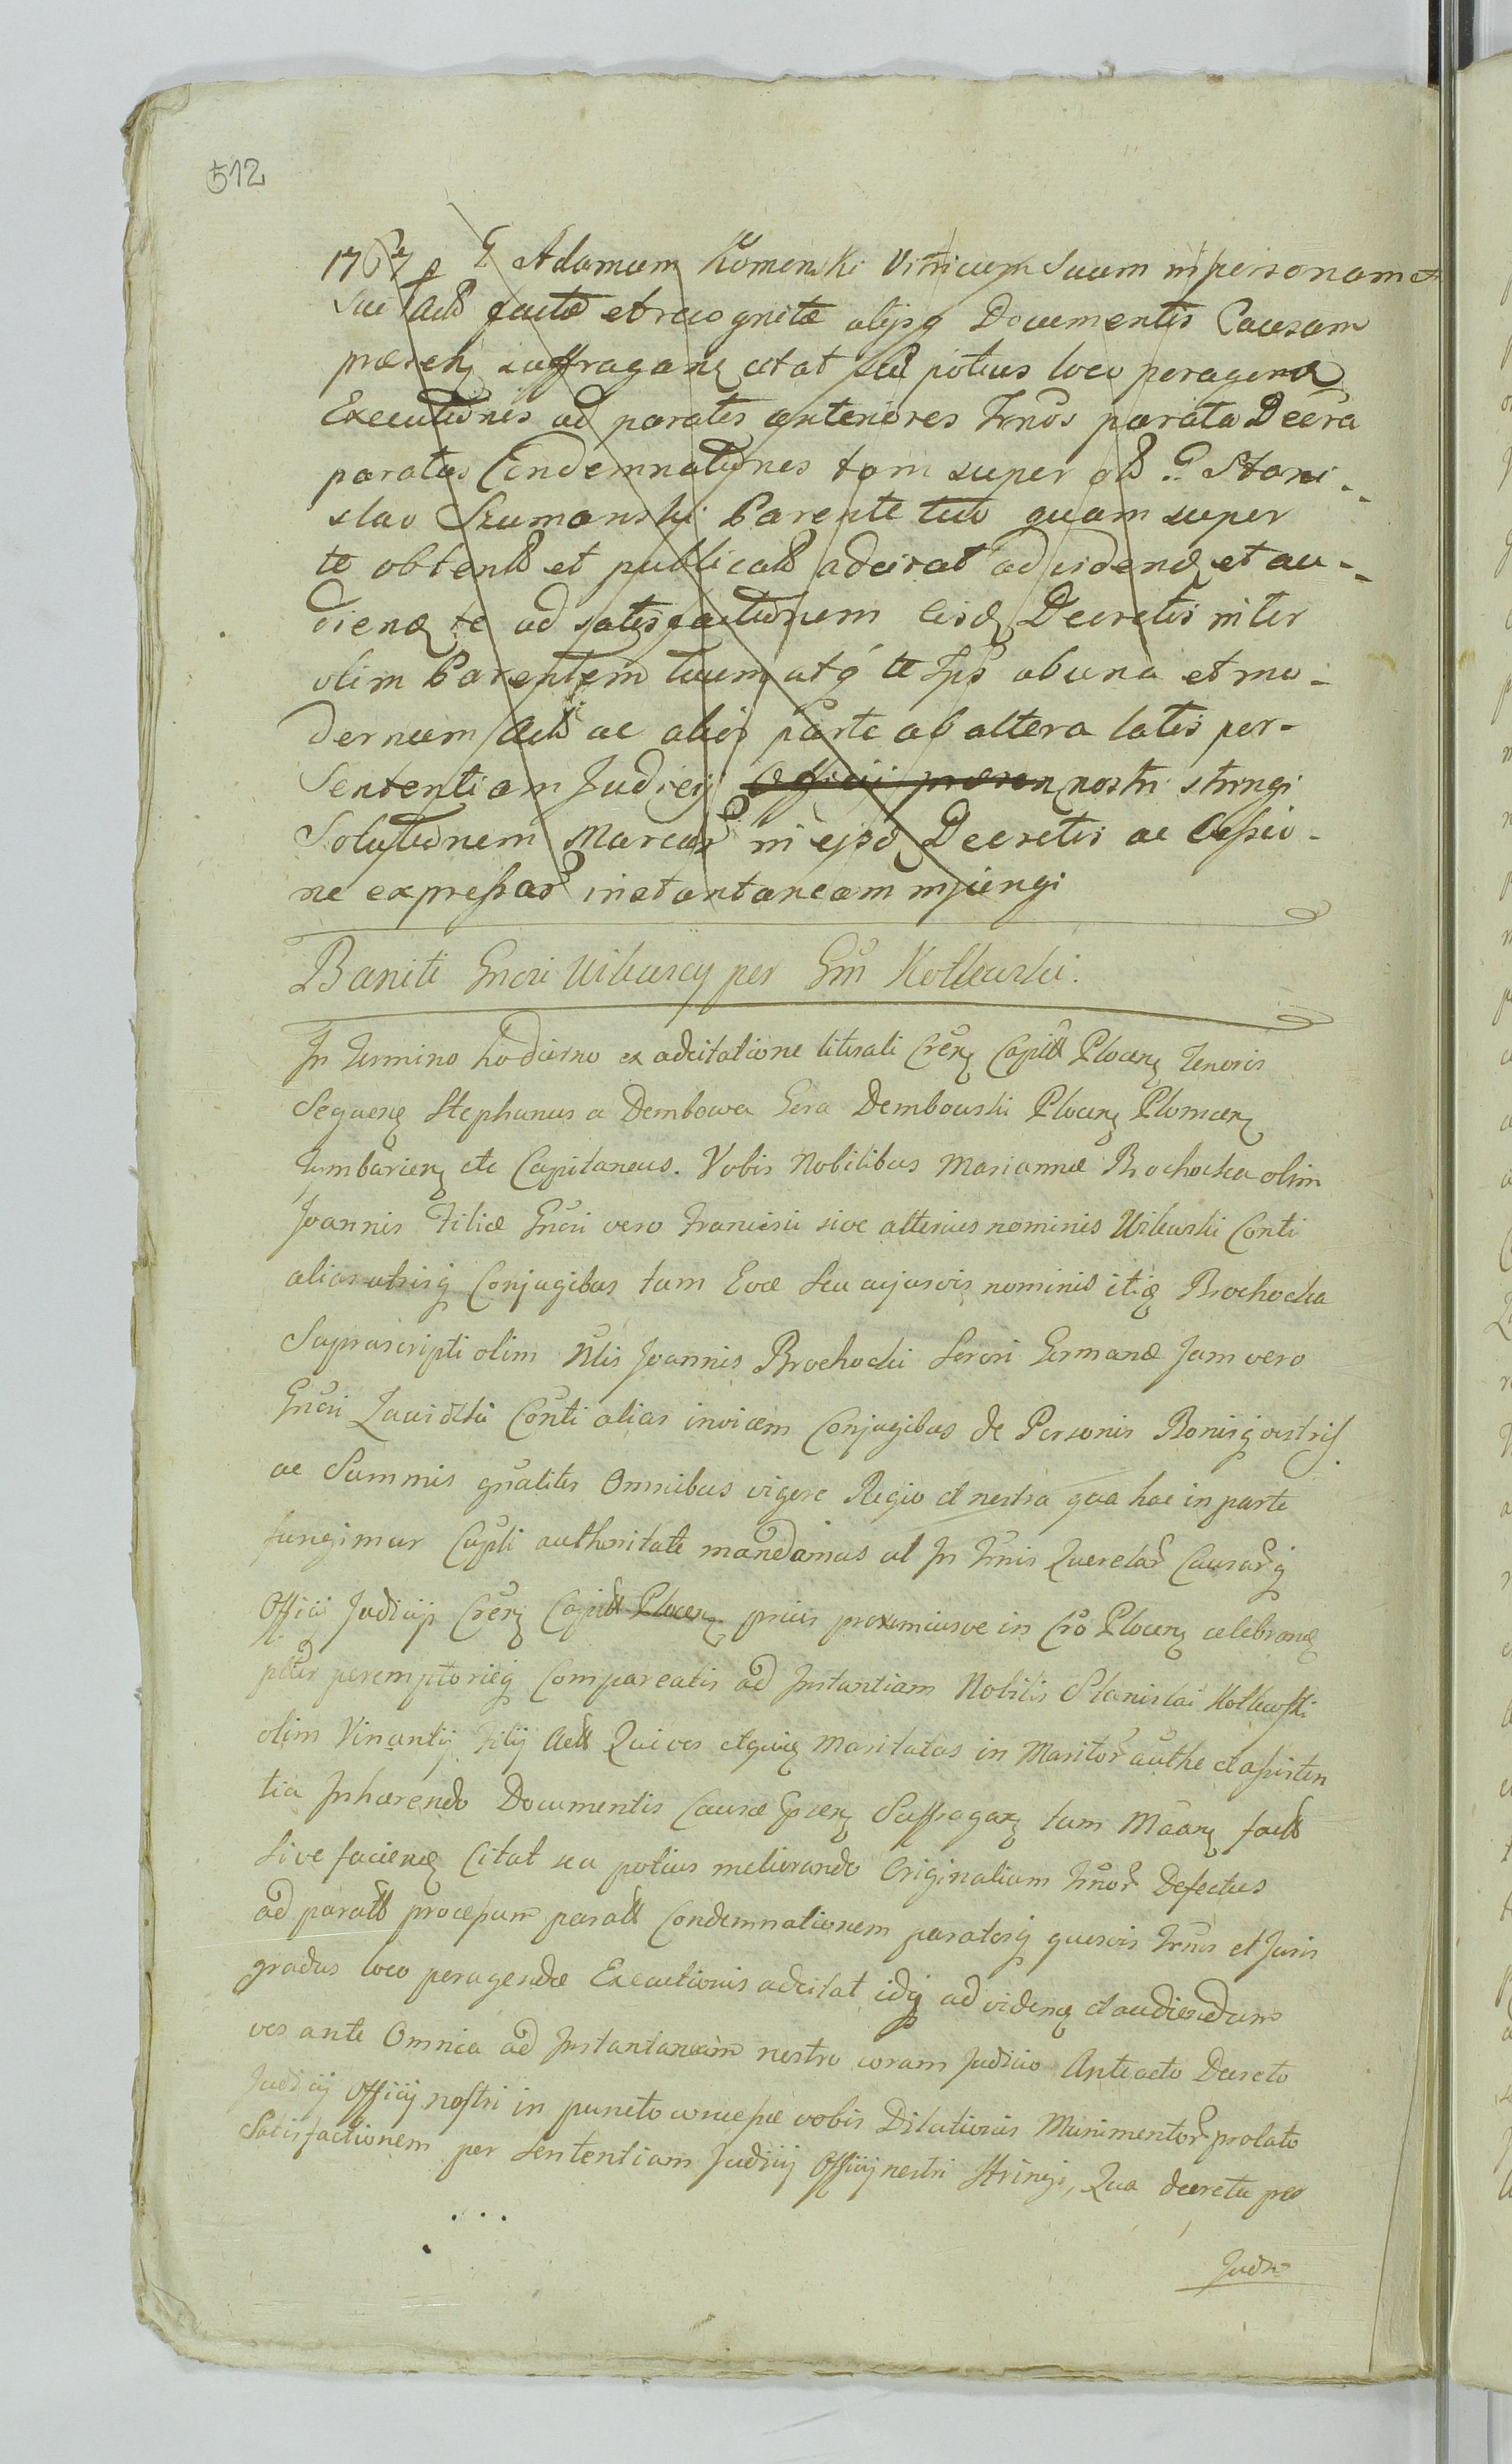 512
1767 p G Adamum Komenski Vitricum Suum in personam
Sui act factæ et recognitæ alijsq Documentis Causam
præsen suffragan citat seu potius loco peragend
Executionis ad paratas anteriores Trnos parata Decra
paratas Condemnationes tam super olt G. Stani-
slao Szumanski Parente tuo quam super
te obtent et publicat adcitat ad videnд et au-
diend te ad satisfactionem eisd Decretis inter
olim Parentem tuum atq te Ips ab una et mo-
dernum Act ac alios parte ab altera latis per
Sententiam Judicij Officij præsen nostri stringi
Solutionem Marcar in ejsd Decretis ac Cessio-
ne expressar instantaneam injungi
Baniti Gnosi Wiluscy per Gm Kotkowski.
In Termino hodierno ex adcitatione literali Cren Captt Plocen Tenoris
Sequen Stephanus a Dembowa Gora Dembowski Plocen Plonscen
Tymbarien etc Capitaneus. Vobis Nobilibus Mariannæ Brochocka olim
Joannis Filiæ Gnosi vero Francisci sive alterius nominis Conti
alias utrisq Conjugibus tum Evæ seu cujusvis nominis itid Brochocka
Suprascripti olim Nlis Joannis Brochocki Sorori Germanæ Jam vero
Gnosi Conti alias invicem Conjugibus de Personis Bonisq vestris
ac Summis gnaliter Omnibus vigore Regio et nostra qua hac in parte
fungimur Capli authoritate mandamus ut In Trnis Querelar Causarq
Officij Judicijq Cren Captt Plocen prius proximiusve in Cro Plocen celebrand
pltr peremptorieq Compareatis ad Instantiam Nobilis Stanislai Kotkowski
olim Vincentij Filij Act Qui vos etquid Maritatas in Maritor authe et assisten
tia Inhærendo Documentis Causæ Suffragan tum facti
sive faciend Citat seu potius meliorando Originalium Trnor Defectus
ad paratt processum paratt Condemnationem paratosq quosvis Trnos et Juris
gradus loco peragendæ Executionis adcitat idq ad vidend et audiendum
vos ante Omnia ad Instantaneam nostro coram Judicio Anteacto Decreto
Judicij Officij nostri in puncto concessæ vobis Dilationis Munimentor prolato
Satisfactionem per Sententiam Judicij Officij nostri Stringi, Qua decreta pro
Judi